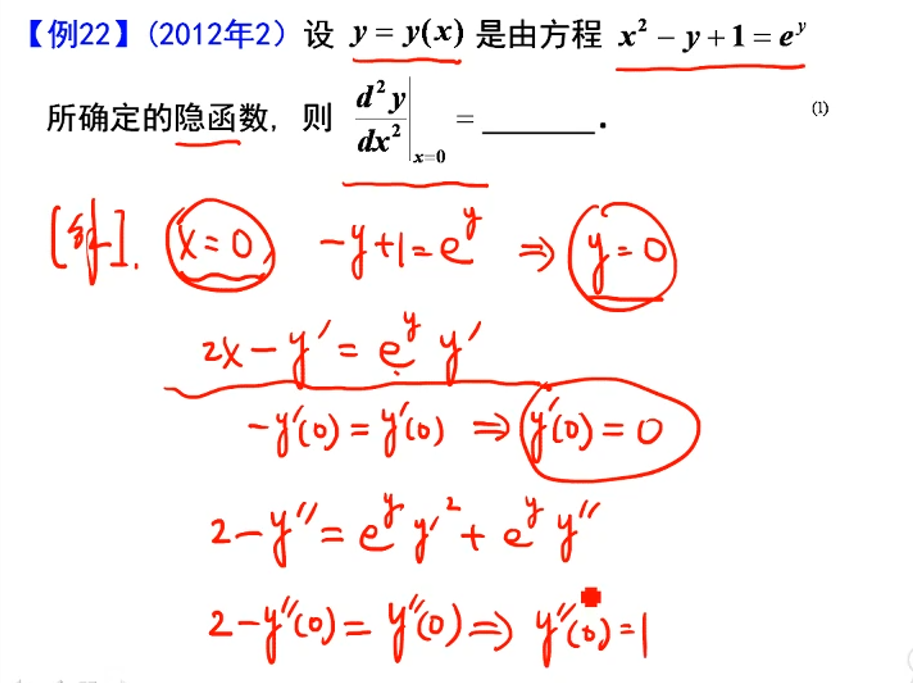 【例22】(2012年2) 设 y = y(x) 是由方程 x² − y + 1 = eʸ
所确定的隐函数, 则 d²y/dx² |ₓ₌₀ = ______. (1)
[解]. x = 0 −y + 1 = eʸ ⇒ y = 0
2x − y′ = eʸ y′
−y′(0) = y′(0) ⇒ y′(0) = 0
2 − y″ = eʸ y′² + eʸ y″
2 − y″(0) = y″(0) ⇒ y″(0) = 1